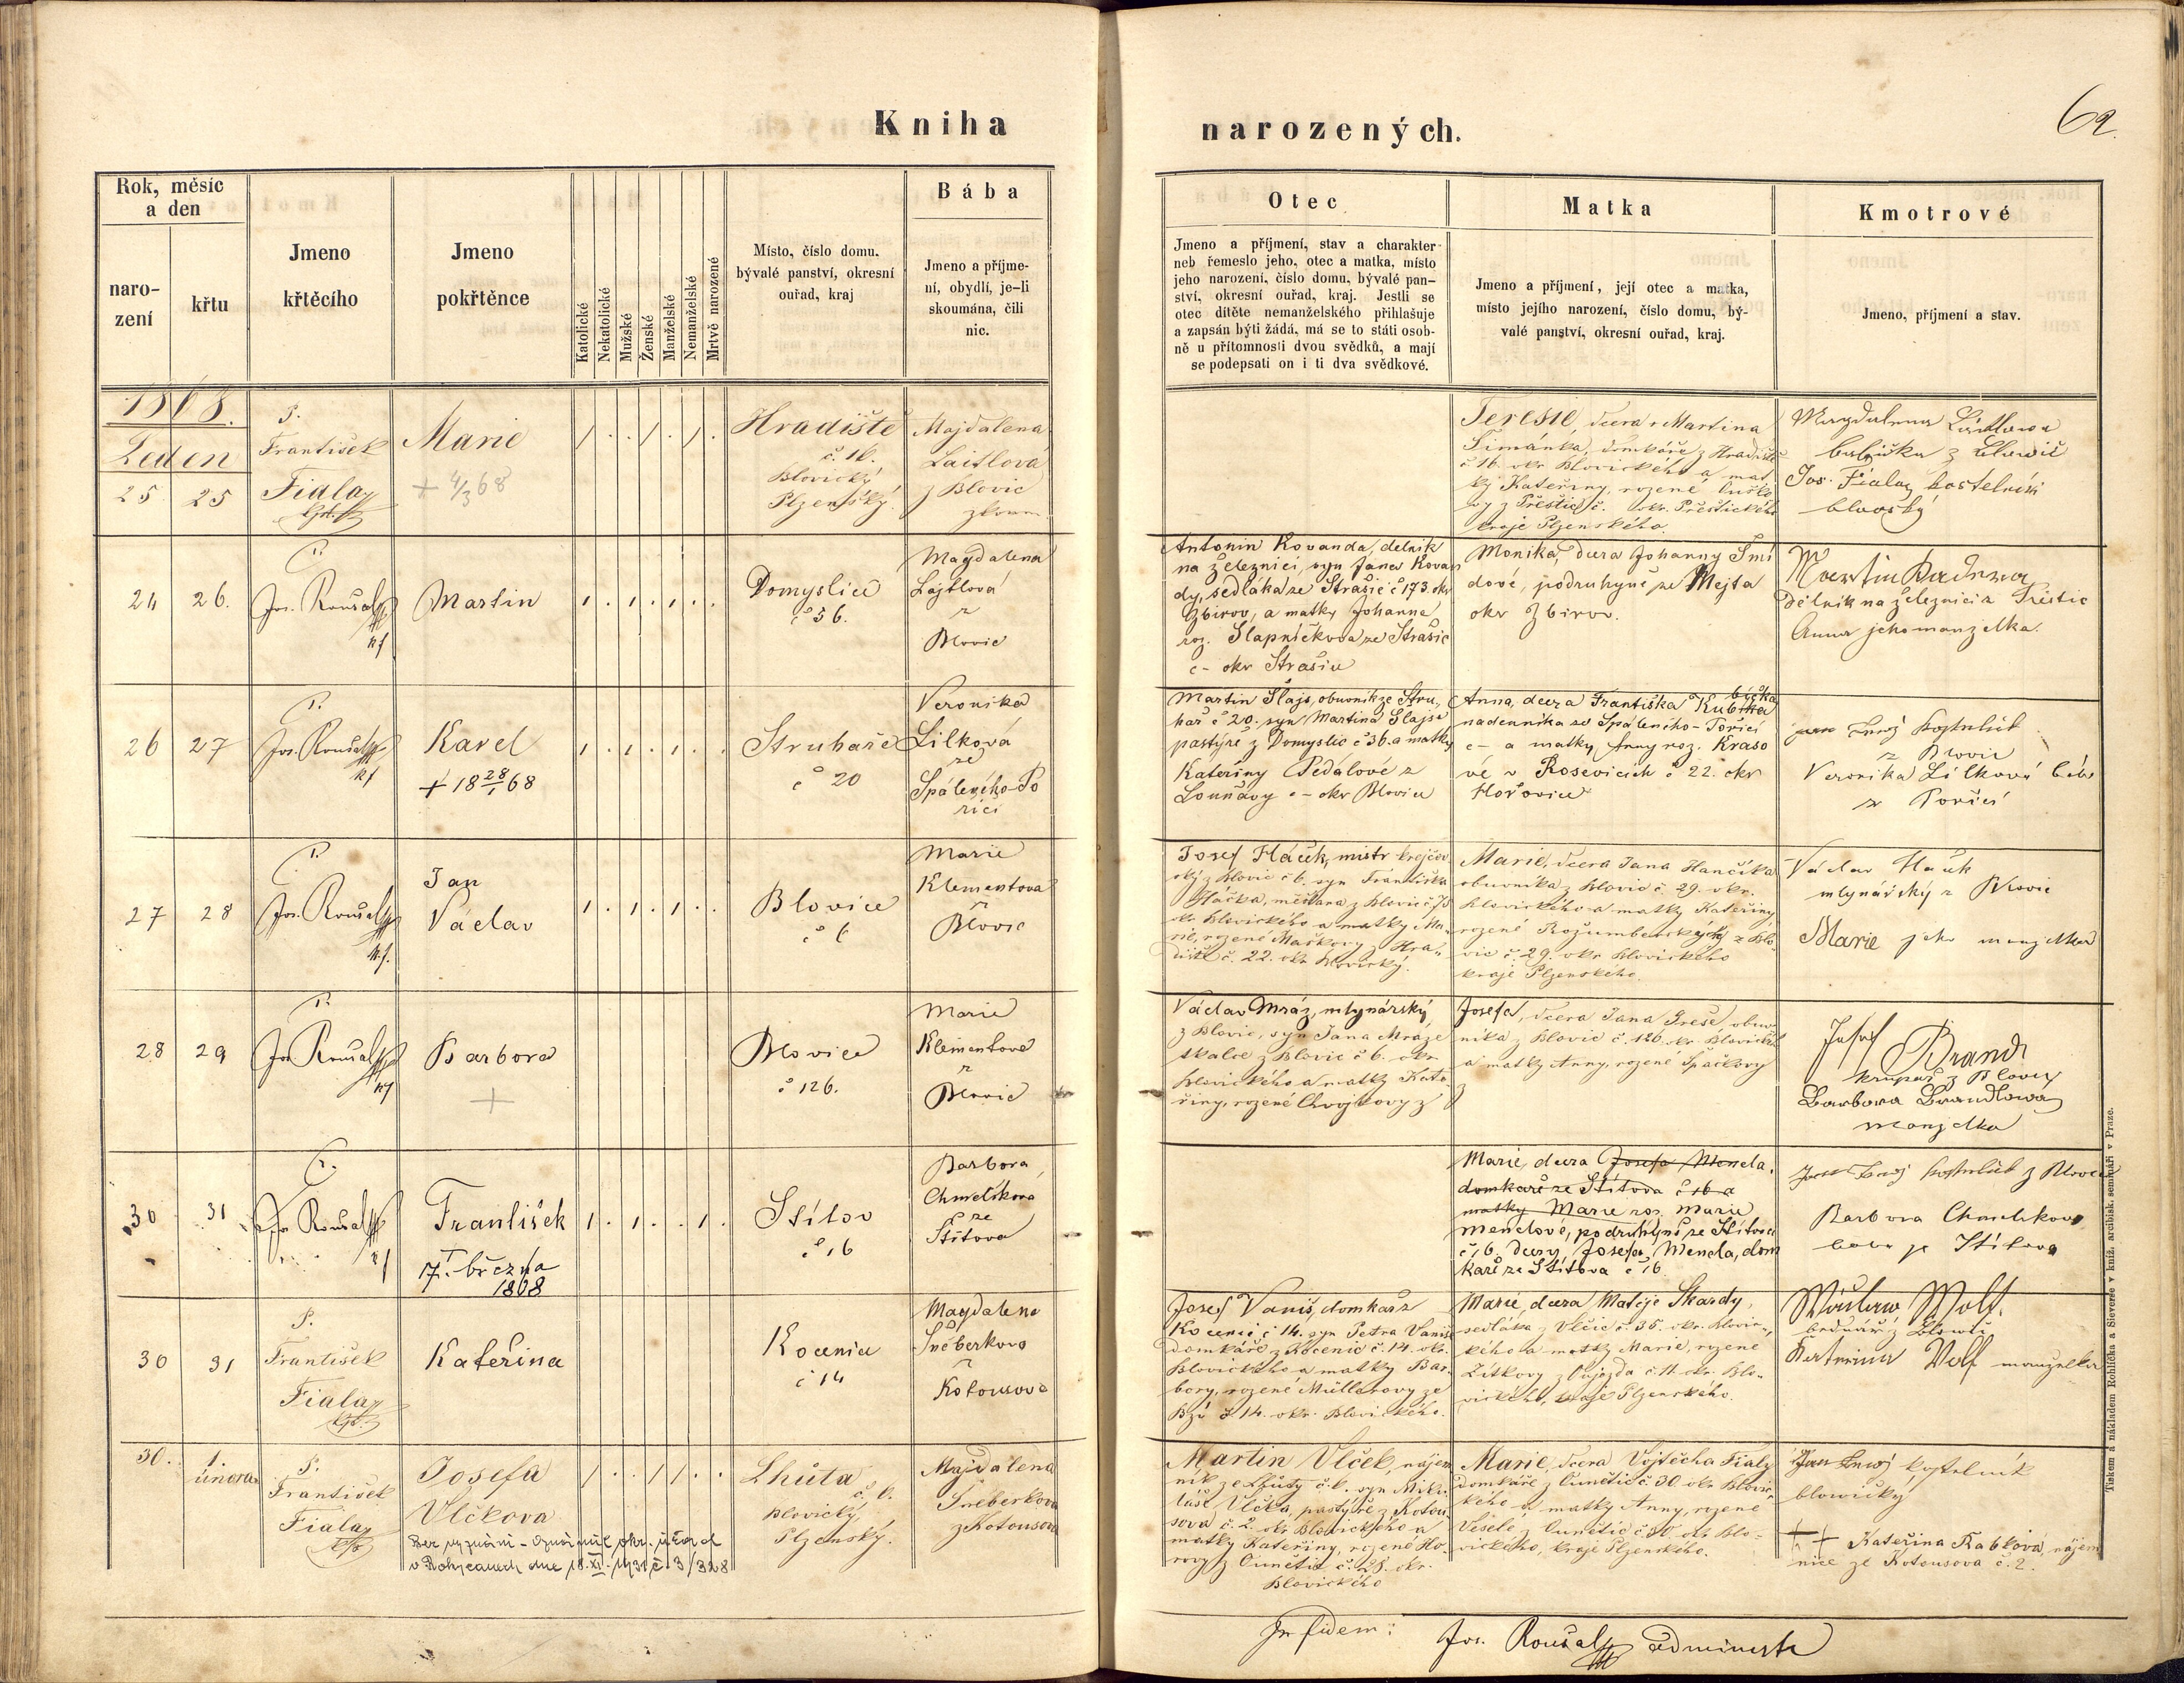 Kniha
narozených.
62.
Rok, měsíc
a den
naro-
zení
křtu
Jmeno
křtěcího
Jmeno
pokřtěnce
Katolické
Nekatolické
Mužské
Ženské
Manželské
Nemanželské
Mrtvě narozené
Místo, číslo domu,
bývalé panství, okresní
ouřad, kraj
Bába
Jmeno a příjme-
ní, obydlí, je-li
skoumána, čili
nic.
Otec
Jmeno a příjmení, stav a charakter
neb řemeslo jeho, otec a matka, místo
jeho narození, číslo domu, bývalé pan-
ství, okresní ouřad, kraj. Jestli se
otec dítěte nemanželského přihlašuje
a zapsán býti žádá, má se to státi osob-
ně u přítomnosti dvou svědků, a mají
se podepsati on i ti dva svědkové.
Matka
Jmeno a příjmení, její otec a matka,
místo jejího narození, číslo domu, bý-
valé panství, okresní ouřad, kraj.
Kmotrové
Jmeno, příjmení a stav.
1868.
Leden
25 25
P.
František
Fiala
Marie
+ 4/3 68
Hradiště
č. 16.
Blovický
Plzeňský.
Majdalena
Laitlová
z Blovic
zkoum.
Teresie, dcera Martina
Šimánka, domkáře z Hradiště
č 16. okr Blovického a mat
ky Kateřiny, rozené
z Přeštic č. okr. Přeštického
kraje Plzenského.
Magdalena
babička z
Jos. Fiala kostelník
24 26.
P.
Jos. Roušal
Martin
Domyslice
č 36.
Magdalena
Lajtlová
z
Blovic
Antonin Kovanda, delnik
na železnici, syn Jana Kovan
dy, sedláka ze Strašic č 173. okr
Zbirov, a matky Johanna
roz. Slapničkova ze Strašic
c - okr Strašice
Monika, dcera Johanny Šmi
dové, podruhyně ze Mejta
okr Zbirov.
Martin
dělník na železnici z
Anna jeho manželka.
26 27
P.
Jos. Roušal
Karel
+ 18 28/1 68
Struhaře
č 20
Veronika
Lilková
ze
Spáleného-Po
řici
Martin Šlajs, obuvník ze Stru,
hař č 20. syn Martina Šlajse
pastýře z Domyslic č 36. a matky
Kateřiny Pedálové z
c - okr Blovice
Anna, dcera Františka Kubička
nadennika ze Spáleného-Pořiči
c - a matky Anny roz. Kraso
vé v Rosevicích č 22. okr
Hořovice
z Blovic
Veronika Lilková bába
z Poříčí
27 28
P.
Jos. Roušal
Jan
Václav
Blovice
č 6
Marie
Klementova
z
Blovic
Josef Haček, mistr krejčov
ský z Blovic č 6. syn Františka
Háčka, měšťana z Blovic č 75
okr Blovického a matky Ma,
rie, rozené Maškovy z Hra,
diště č. 22. okr Blovický.
Marie, dcera Jana Hančíka
obuvníka z Blovic č. 29. okr.
Blovického a matky Kateřiny
rozené z Blo,
vic č. 29. okr Blovického
kraje Plzenského.
Václav
mlynářský z Blovic
Marie jeho manželka
28 29
P.
Jos. Roušal
Barbora
+
Blovice
č 126.
Marie
Klementova
z
Blovic
Václav Mráz, mlynářský
z Blovic, syn Jana Mráze
tkalce z Blovic č 6. okr.
Blovického a matky Kate
řiny, rozené Chvojkovy z
Josefa, dcera Jana Greše, obuv
níka z Blovic č. 126. okr. Blovického
a matky Anny, rozené Špačkovy
z
Josef Brandl
krupař z Blovic
Barbora Brandlowa
manželka
30 31
P.
Jos. Roušal
František
17. března
1868
Stítov
č 16
Barbora
Chmelíková
ze
Štítova
Marie, dcera Josefa Mencla,
domkaře ze Stítova č 16 a
matky Marie roz. Marie
Menclové, podruhyně ze Stítova
č 16. dcery Josefa Mencla, dom
kaře ze Stítova č 16.
z Blovic
Barbora Chmelikova
ze Stítova
30 31
P.
František
Fiala
Kateřina
Kocenice
č 14
Magdalena
Šneberkova
z
Kotousova
Josef Vaniš, domkář z
Kocenic č 14. syn Petra Vaniše
domkáře z Kocenic č. 14. okr.
Blovického a matky Bar,
bory, rozené Müllerovy ze
Bzí č 14. okr. Blovického.
Marie, dcera Matěje Škardy,
sedláka z Vlčic č. 36. okr. Blovic,
kého a matky Marie, rozené
Žitkovy z Oujezda č. 11. okr. Blo,
vického, kraje Plzenského.
Wáclaw Wolf.
bednář z Blowic
Katerina Wolf manzelka
30. 1.
února
P.
František
Fiala
Josefa
Vlčkova
Bez vyznání - Oznámil okr. úřad
v Rokycanech dne 18. XI. 1931 č. 3/328
Lhůta
č 6.
Blovický,
Plzenský.
Majdalena
Sneberkova
z Kotousova
Martin Vlček, nájem
ník ze Lhůty č. 6. syn Miku,
láše Vlčka, pastýře z Kotou
sova č. 2. okr Blovického a
matky Kateřiny, rozené Ho,
rovy z Ounětic č. 28. okr.
Blovického
Marie, dcera Vojtěcha Fialy
domkáře z Ounětic č. 30. okr Blovic,
kého a matky Anny, rozené
Veselé z Ounětic č. 30. okr. Blo,
vického, kraje Plzenského.
Jan kostelník
blowický
++ Kateřina Rabková, nájem
nice ze Kotousova č. 2.
In fidem: Jos. Roušal administr
Tiskem a nákladem Rohlíčka a Sieverse v kníž. arcibisk. semináři v Praze.